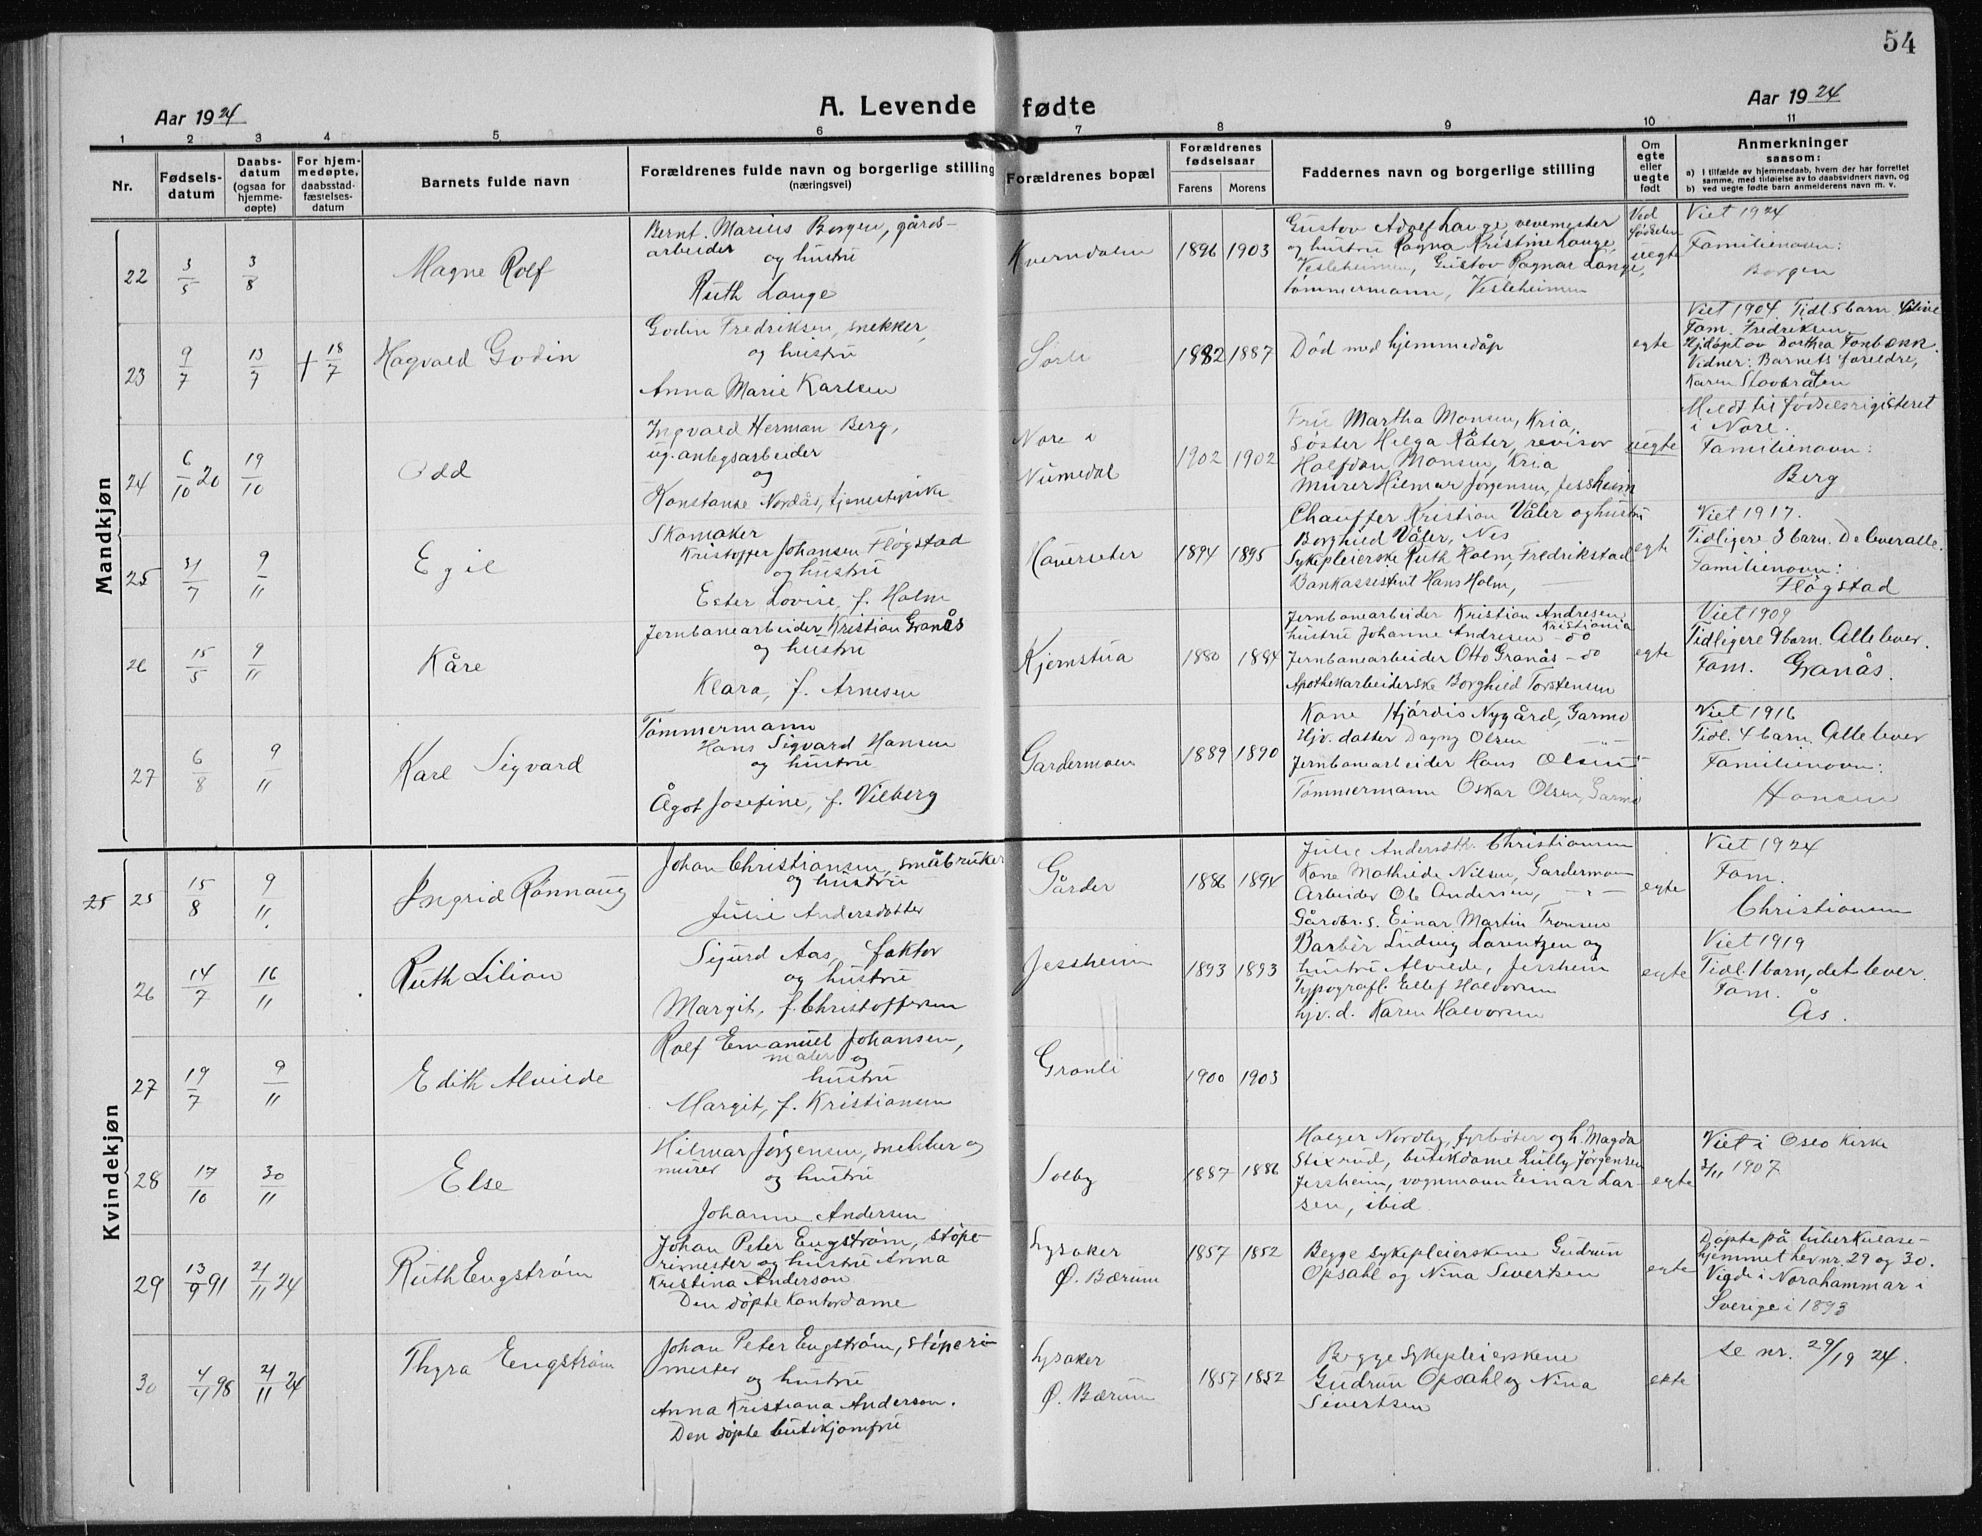 54
Aar 1924
A. Levende fødte
Aar 1924
1 2 3 4 5 6 7 8 9 10 11
Nr.
Fødsels-
datum
Daabs-
datum
(ogsaa for
hjemme-
døpte)
For hjem-
medøpte,
daabsstad-
fæstelses-
datum
Barnets fulde navn
Forældrenes fulde navn og borgerlige stilling
(næringsvei)
Forældrenes bopæl
Forældrenes
fødselsaar
Farens Morens
Faddernes navn og borgerlige stilling
Om
egte
eller
uegte
født
Anmerkninger
saasom:
a) I tilfælde av hjemmedaab, hvem der har forrettet
samme, med tilføielse av to daabsvidners navn, og
b) ved uegte fødte barn anmelderens navn m. v.
Mandkjøn
22
3/5
3/8
Magne Rolf
Bernt Marius Borgen, gårds-
arbeider
og hustru
Ruth Lange
Kverndalen
1896 1903
Gustov Adolf Lange, vevemester
og hustru Ragna Kristine Lange,
Vesleheimen, Gustov Ragnar Lange,
tømmermann, Vesleheimen
Ved
fødselen
uegte
Viet 1924
Familienavn:
Borgen
23
9/7
13/7
+ 18/7
Hagvald Godin
Godin Fredriksen, snekker,
og hustru
Anna Marie Karlsen
Sørli
1882 1887
Død med hjemmedåp
egte
Viet 1904. Tidl 5 barn
Fam. Fredriksen
Hjdøpt av Dorthea Fonbækk.
Vidner: Barnets foreldre,
Karen Stovbråten
24
6/10 20
19/10
Odd
Ingvald Herman Berg,
ug. anlegsarbeider
og
Konstanse Nordås, tjenestepike
Nore i
Numedal
1902 1902
Fru Martha Monsen, Kria,
Søster Helga Råter, revisor
Halfdan Monsen, Kria
Murer Hilmar Jørgensen, Jessheim
uegte
Meldt til fødselsrigisteret
i Nore.
Familienavn:
Berg
25
31/7
9/11
Egil
Skomaker
Kristoffer Johansen Fløgstad
og hustru
Ester Lovise, f. Holm
Haverseter
1894 1895
Chauffer Kristian Våler og hustru
Borghild Våler, Nes
Sykepleierske Ruth Holm, Fredrikstad
Bankassestent Hans Holm, —
egte
Viet 1917.
Tidligere 3 barn. De lever alle.
Familienavn:
Fløgstad
26
15/5
9/11
Kåre
Jernbanearbeider Kristian Granås
og hustru
Klara, f. Arnesen
Kjemstua
1880 1884
Jernbanearbeider Kristian Andresen
Kristiania
hustru Johanne Andresen – do
Jernbanearbeider Otto Granås – do
Apothekarbeiderske Borghild Torstensen
egte
Viet 1909
Tidligere 9 barn. Alle lever.
Fam. Granås.
27
6/8
9/11
Karl Sigvard
Tømmermann
Hans Sigvard Hansen
og hustru
Ågot Josefine, f. Vilberg
Gardermoen
1889 1890
Kone Hjørdis Nygård, Garmo
Hjv. datter Dagny Olsen — " —
Jernbanearbeider Hans Olsen
Tømmermann Oskar Olsen, Garmo
Viet 1916
Tidl. 4 barn. Alle lever
Familienavn:
Hansen
Kvindekjøn
25 25
15/8
9/11
Ingrid Rønnaug
Johan Christiansen, småbruker
og hustru
Julie Andersdotter
Gårder
1886 1894
Julie Andersdtr. Christiansen
Kone Mathilde Nilsen, Gardermoen
Arbeider Ole Andersen, — " —
Gårdbr. s. Einar Martin Tronsen
egte
Viet 1924
Fam.
Christiansen
26
14/7
16/11
Ruth Lilian
Sigurd Aas, faktor
og hustru
Margit, f. Christoffersen
Jessheim
1893 1893
Barbèr Ludvig Larentzen og
hustru Alvilde, Jessheim
Typografl. Ellef Halvorsen
hjv. d. Karen Halvorsen
egte
Viet 1919
Tidl. 1 barn, det lever.
Fam.
Ås.
27
19/7
9/11
Edith Alvilde
Rolf Emanuel Johansen,
maler og
hustru
Margit, f. Kristiansen
Granli
1900 1903
28
17/10
30/11
Else
Hilmar Jørgensen, snekker og
murer
og hustru
Johanne Andersen
Solby
1887 1886
Holger Nordby, fyrbøter og h. Magda
Stixrud, butikdame Lully Jørgensen
Jessheim, vognmann Einar Lar-
sen, ibid
egte
Viet i Oslo Kirke
3/11 1907
29
13/9 91
21/11 24
Ruth Engstrøm
Johan Peter Engstrøm, støpe-
rimester og hustru Anna
Kristina Anderson
Den døpte kontordame
Lysaker
Ø. Bærum
1857 1852
Begge sykepleierskene Gudrun
Opsahl og Nina Sivertsen
egte
Døpte på tuberkulose-
hjemmet her nr. 29 og 30.
Vigde i Norahammar i
Sverige i 1893
30
4/11 98
21/11 24
Thyra Engstrøm
Johan Peter Engstrøm, støperi-
mester
og hustru
Anna Kristiana Anderson.
Den døpte butikjomfru
Lysaker
Ø. Bærum
1857 1852
Begge sykepleierskene
Gudrun Opsahl og Nina
Sivertsen
ekte
se nr. 29/19 24.